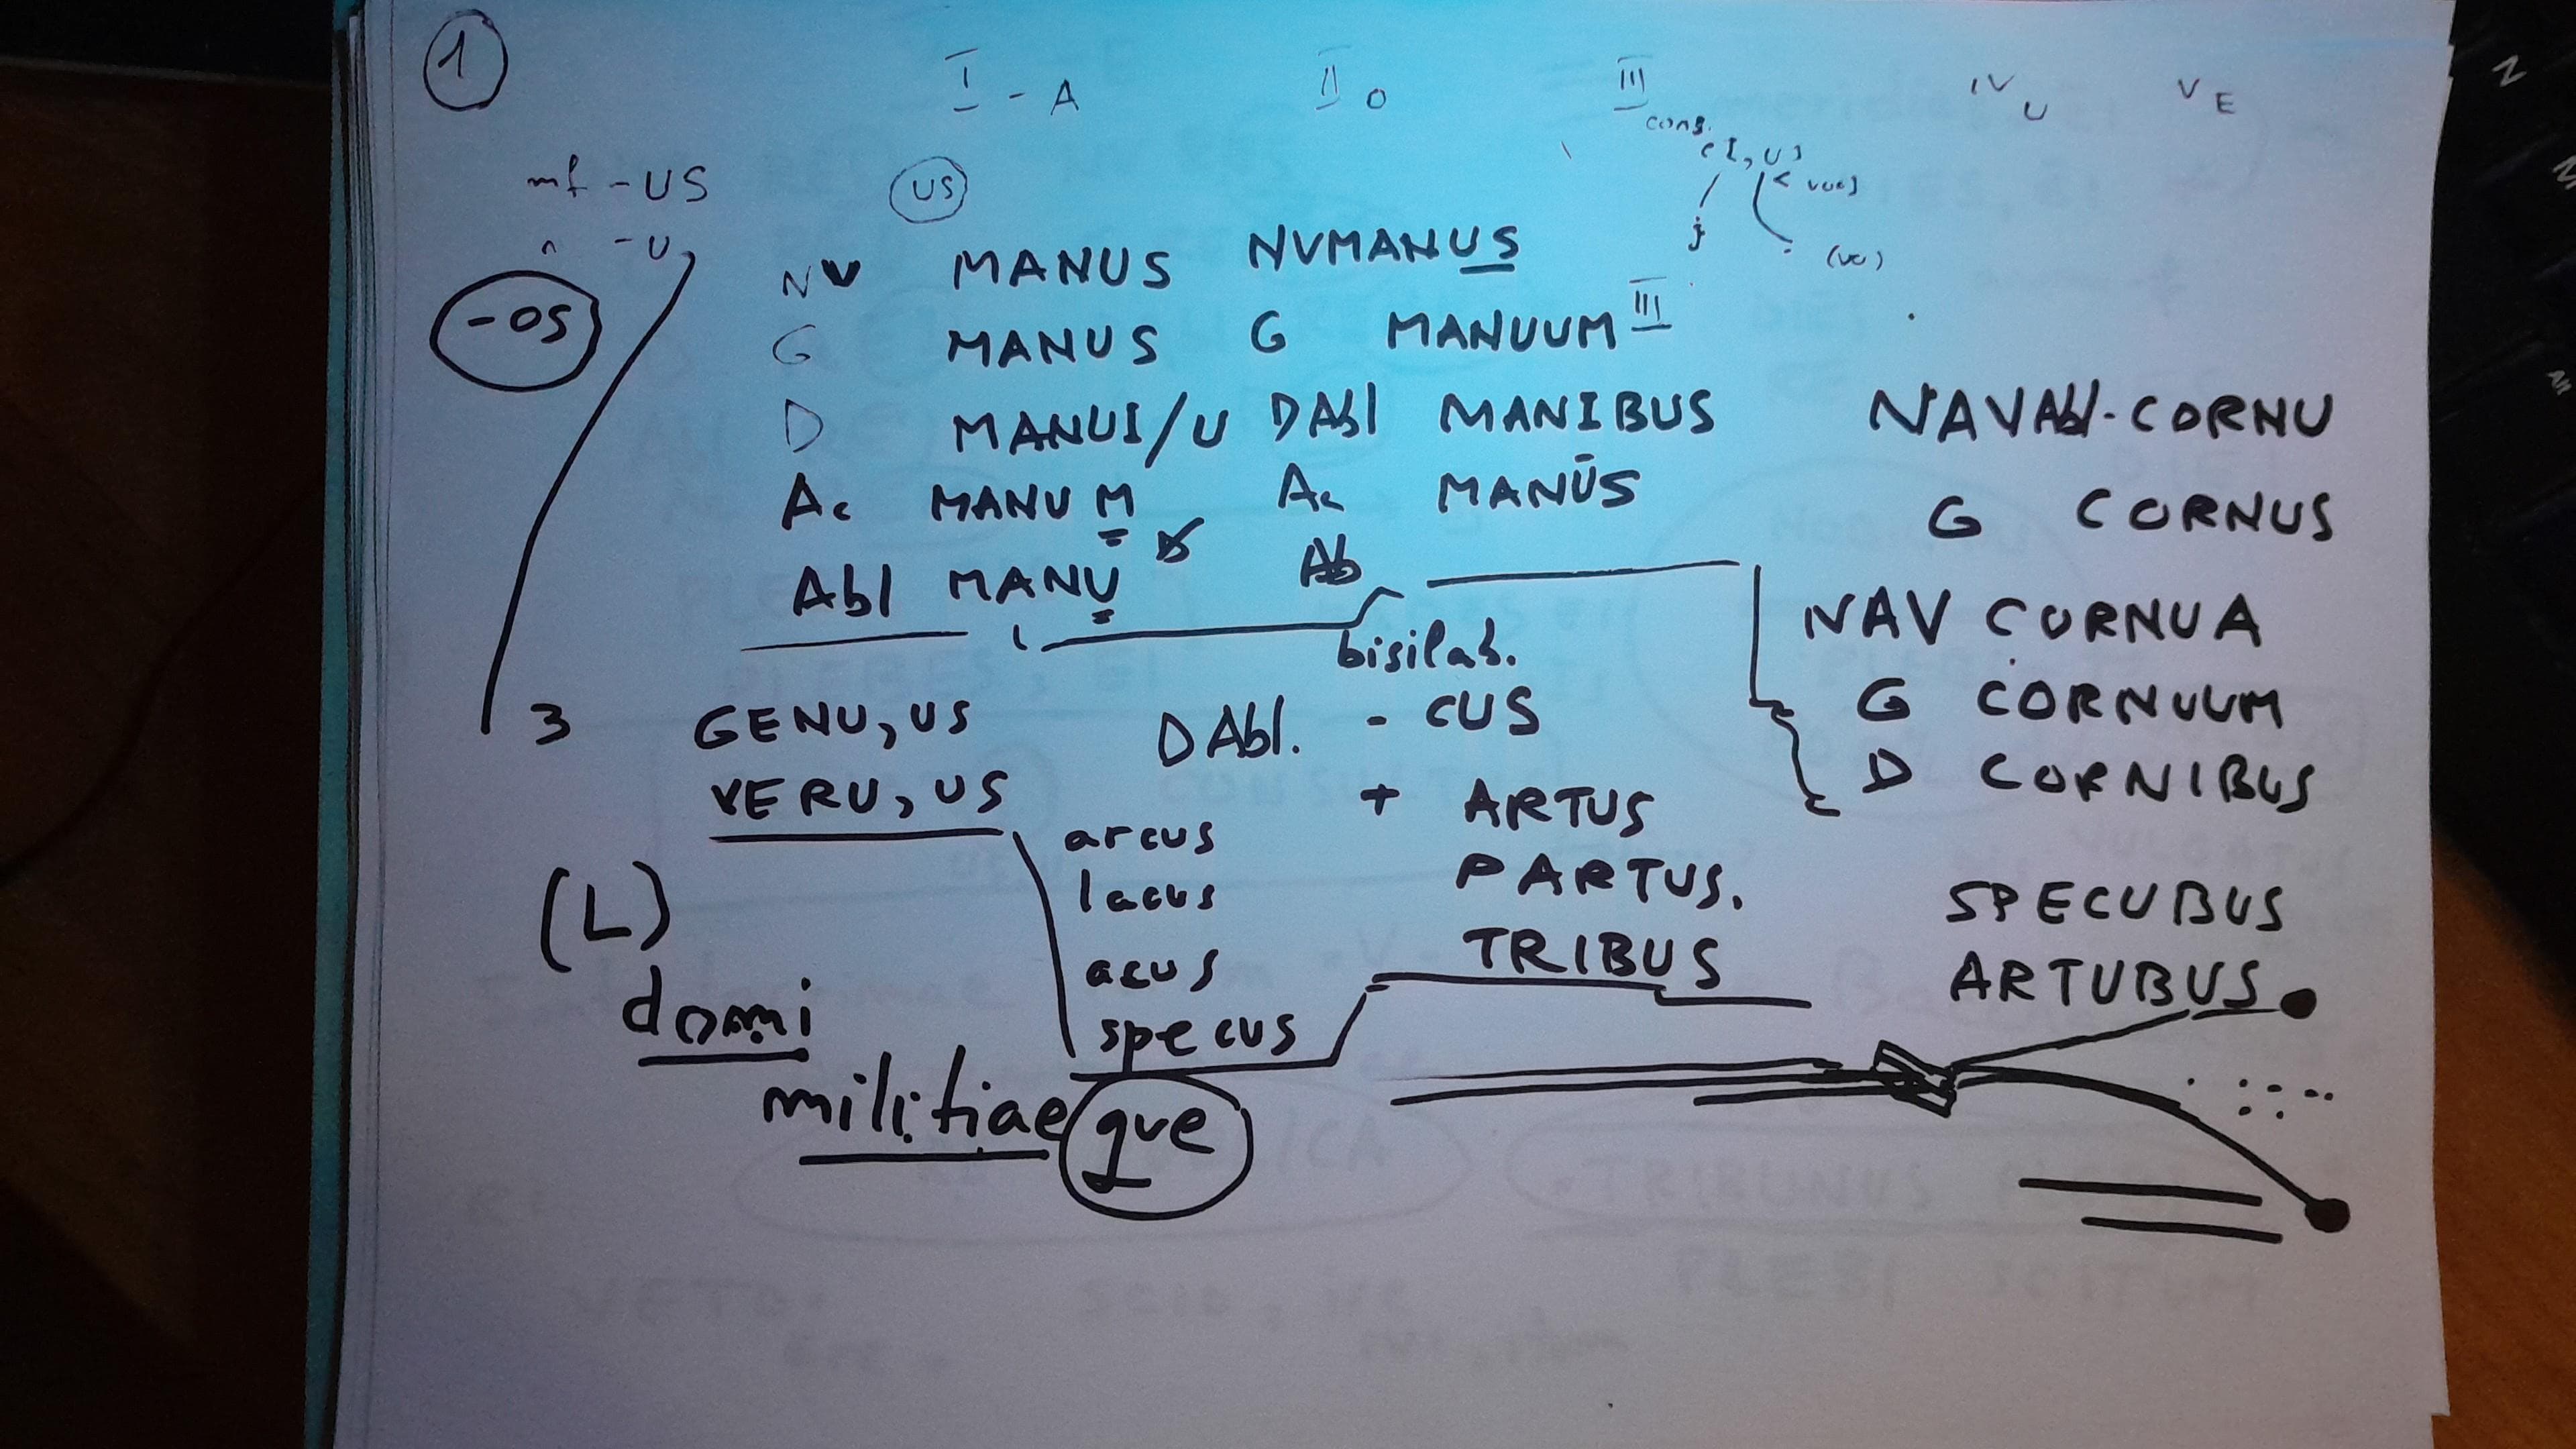 1
I - A II O III IV U V E
cons.
mf - US US
n - U
NV MANUS NVMANUS
- OS
G MANUS G MANUUM III
D MANUI/U DAbl MANIBUS NAVAbl - CORNU
Ac MANUM Ac MANŪS G CORNUS
Abl MANU Ab
NAV CORNUA
bisilab.
3 GENU, US DAbl. - CUS G CORNUUM
VERU, US + ARTUS D CORNIBUS
arcus
lacus PARTUS. SPECUBUS
(L) acus TRIBUS ARTUBUS
domi specus
militiae que